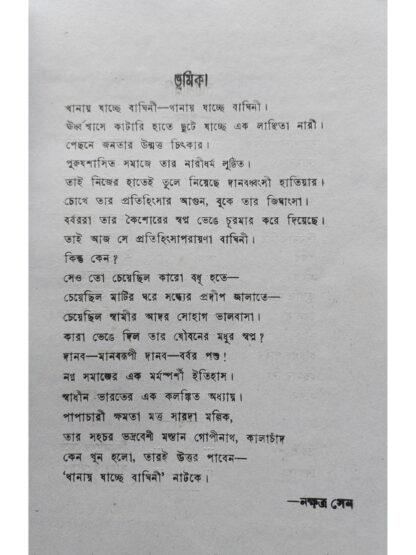 ভূমিকা
থানায় যাচ্ছে বাঘিনী—থানায় যাচ্ছে বাঘিনী।
ঊর্ধ্বশ্বাসে কাটারি হাতে ছুটে যাচ্ছে এক লাঞ্ছিতা নারী।
পেছনে জনতার উন্মত্ত চিৎকার।
পুরুষশাসিত সমাজে তার নারীধর্ম লুণ্ঠিত।
তাই নিজের হাতেই তুলে নিয়েছে দানবধ্বংসী হাতিয়ার।
চোখে তার প্রতিহিংসার আগুন, বুকে তার জিঘাংসা।
বর্বররা তার কৈশোরের স্বপ্ন ভেঙে চূরমার করে দিয়েছে।
তাই আজ সে প্রতিহিংসাপরায়ণা বাঘিনী।
কিন্তু কেন?
সেও তো চেয়েছিল কারো বধূ হতে—
চেয়েছিল মাটির ঘরে সন্ধ্যের প্রদীপ জালাতে—
চেয়েছিল স্বামীর আদর সোহাগ ভালবাসা।
কারা ভেঙে দিল তার যৌবনের মধুর স্বপ্ন?
দানব—মানবরূপী দানব—বর্বর পশু!
নগ্ন সমাজের এক মর্মস্পর্শী ইতিহাস।
স্বাধীন ভারতের এক কলঙ্কিত অধ্যায়।
পাপাচারী ক্ষমতা মত্ত সারদা মল্লিক,
তার সহচর ভদ্রবেশী মস্তান গোপীনাথ, কালাচাঁদ
কেন খুন হলো, তারই উত্তর পাবেন—
'থানায় যাচ্ছে বাঘিনী' নাটকে।
—নক্ষত্র সেন